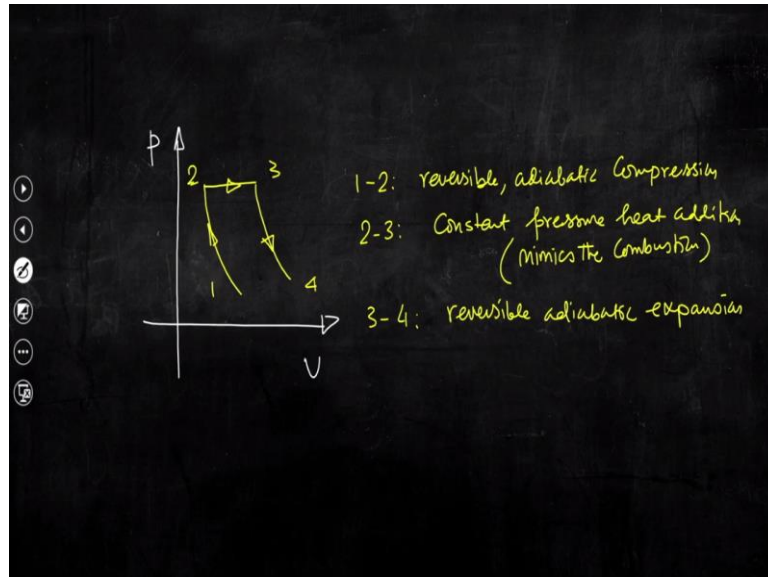 P
2 3
1 4
V
1-2: reversible, adiabatic Compression
2-3: Constant pressure heat addition
(mimics the Combustion)
3-4: reversible adiabatic expansion